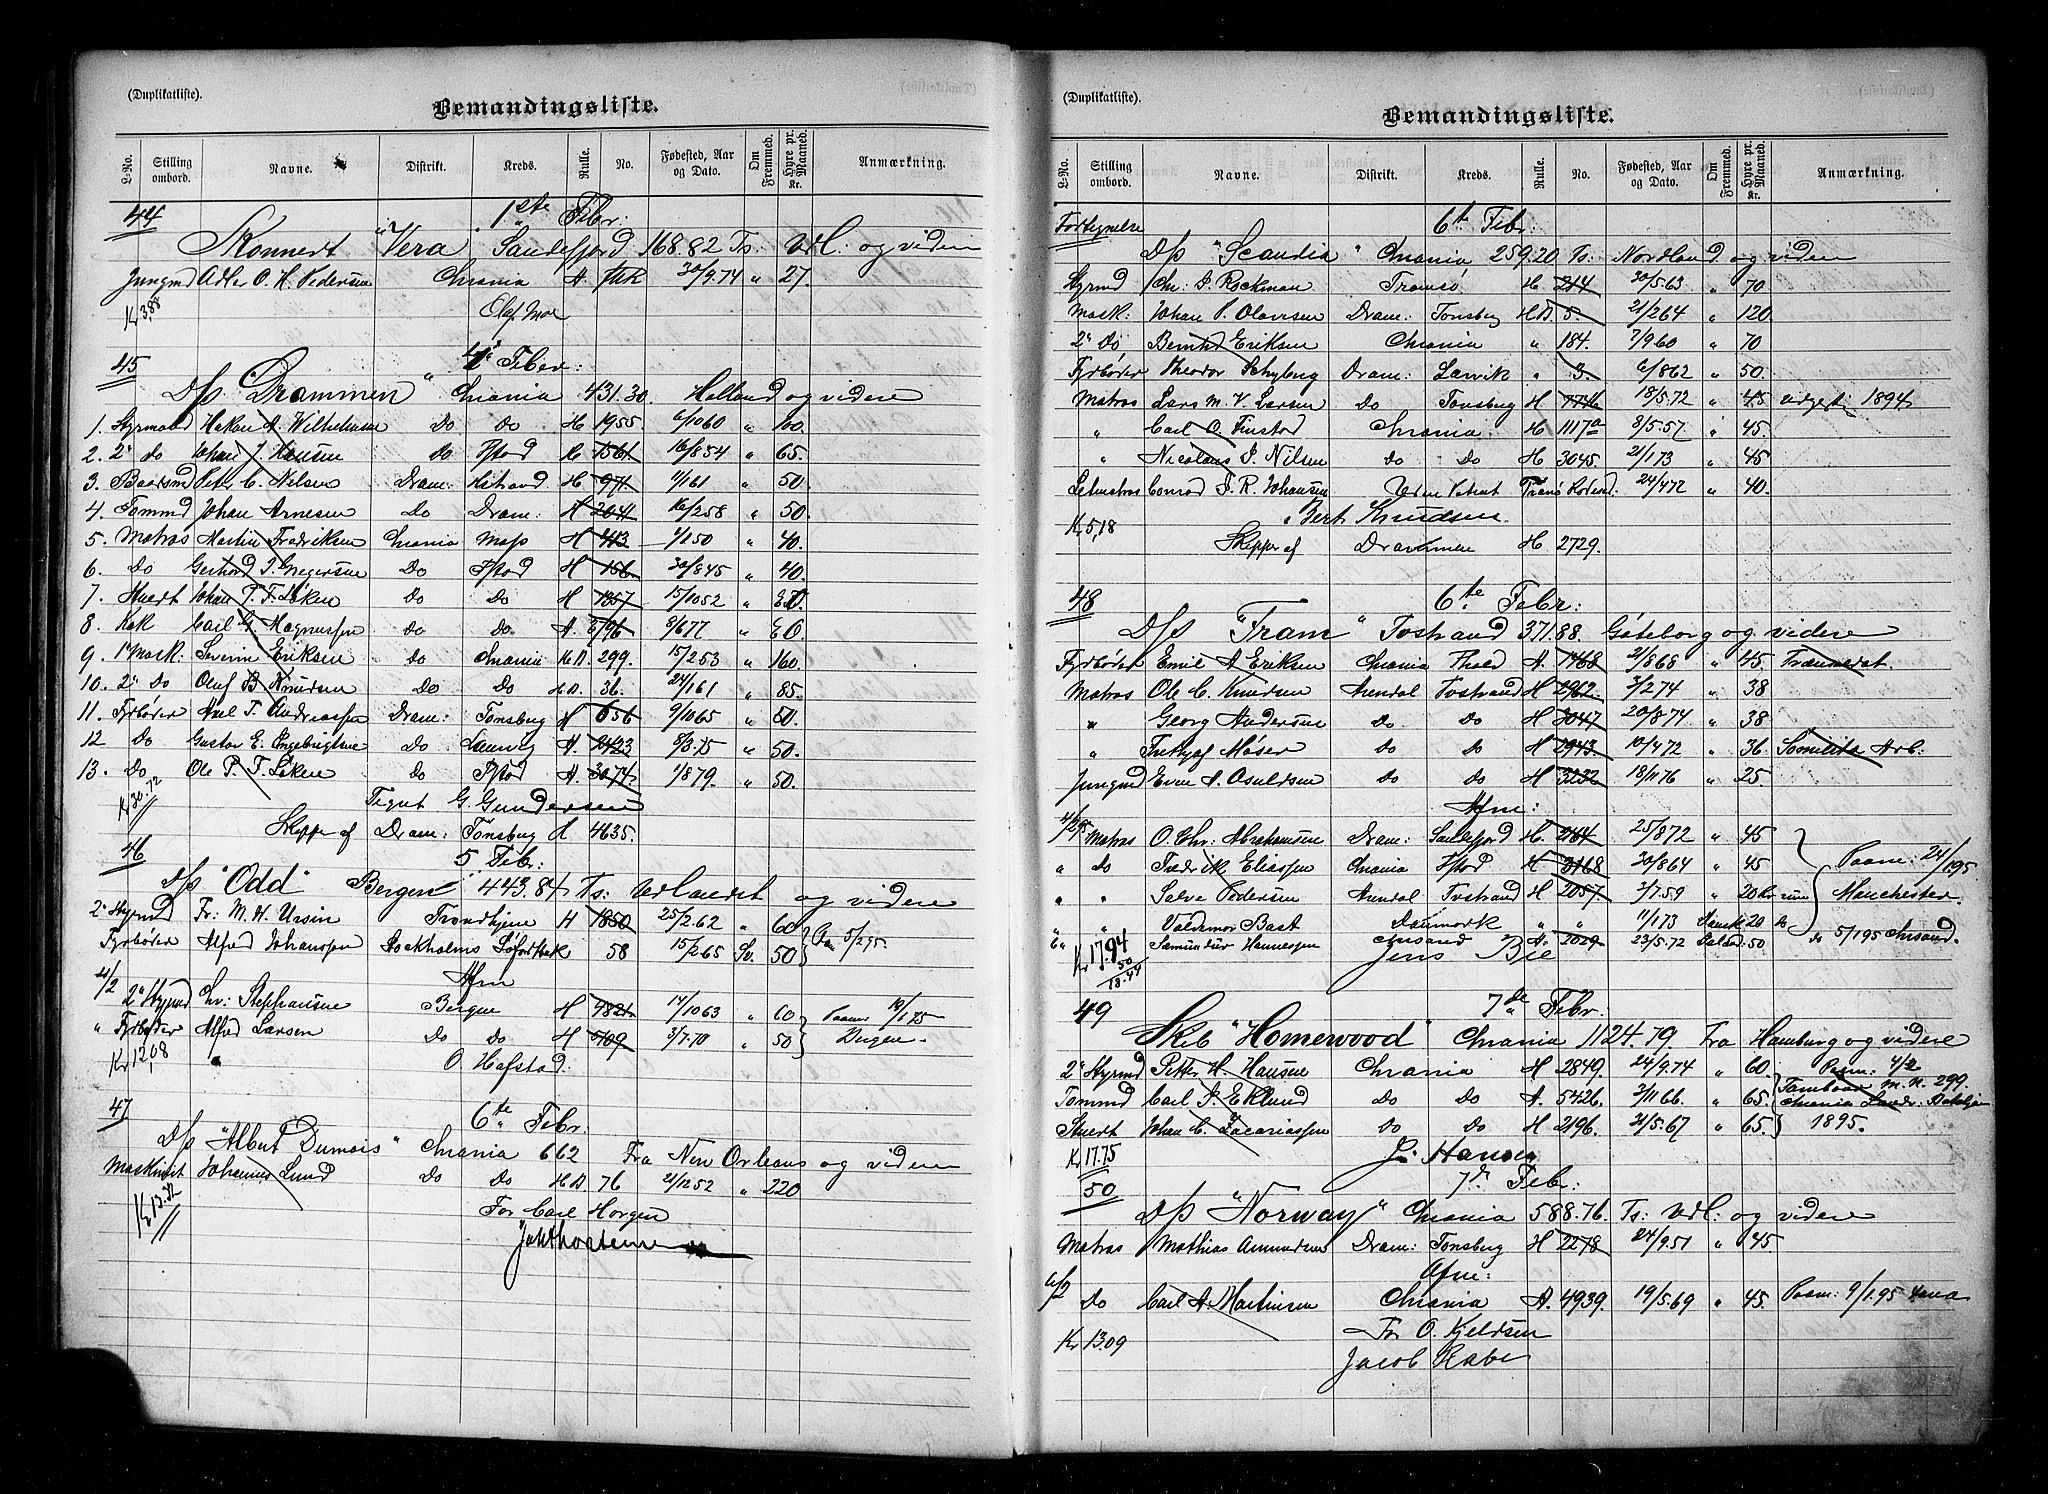 (Duplikatliste).
Bemandingsliste.
L-No. Stilling ombord. Navne. Distrikt. Kreds. Rulle. No. Fødested, Aar og Dato. Om Fremmed. Hyre pr. Maaned. Kr. Anmærkning.
44 1ste Febr:
Skonnert "Vera" Sandefjord 168.82 Ts: Udl: og videre
Jungmd Adler O. H. Pedersen Chrania A 30/9.74 " 27.
Kr 3,88 Olaf Moe
45 4de Febr:
D/s "Drammen" Chrania 431.30. Holland og videre
1. Styrmand Hakon A. Wilhelmsen Do Do H 1955 6/1060 " 100.
2. 2" Do Johan J. Hansen Do Fstad H 1561. 16/854 " 65.
3. Baadsmd Petr. C. Nilsen Dram: H 971. 1/161 " 50.
4. Tømmd Johan Arnesen Do Dram: H 2041 16/258 " 50.
5. Matros Martin Fredriksen Chrania Moss H 413 1/150 " 40.
6. Do Gerhard J. Gregersen Do Fstad H 156. 30/845 " 40.
7. Stuert Johan T. F. Løken Do Do H 1357 15/1052 "
8. Kok Carl G. Magnussen Do Do A. 2796 8/677 "
9. 1" Mask. Severin Eriksen Do Chrania H.A. 299. 15/253 " 160.
10. 2" Do Oluf B. Knudsen Do Do H.A. 36. 24/161 " 85.
11. Fyrbøder Axel T. Andreassen Dram: Tønsberg H 656 9/1065 " 50.
12 Do Gustav E. Engebrigtsen Do Laurvig A. 2423 8/3.75 " 50.
13. Do Ole P. T. Løken Do Fstad A. 3074. 1/879. " 50.
Kr 30.72 G. Gundersen
Skipper af Dram: Tønsberg H 4635.
46 5 Febr:
D/s "Odd" Bergen 443.84 Ts: Udlandet og videre
2" Styrmd Fr: M. H. Ursin Trondhjem H 1850 25/2.62 " 60
Fyrbøder Alfred Johanssen Stockholms 58 15/265 Sv. 50 Paa 5/295.
Afm
4/2 2" Styrmd Chr: Stephansen Bergen H 4821 14/1063 " 60 Paam: 19/175
" Fyrbøder Alfred Larsen Do Do H 5409 3/7.70 " 50 Bergen.
Kr 12,08 O. Hafstad.
47 6te Febr:
D/s "Albert Dumois" Chrania 662 Fra New Orleans og videre
Maskinist Johannes Lund Do Do H.A. 76 21/1252 " 220
Kr 13.32 For Carl Horgen
(Duplikatliste).
Bemandingsliste.
L-No. Stilling ombord. Navne. Distrikt. Kreds. Rulle. No. Fødested, Aar og Dato. Om Fremmed. Hyre pr. Maaned. Kr. Anmærkning.
Fortegnelse 6te Febr:
D/s "Scandia" Chrania 259.20 Ts: Nordland og videre
Styrmd Chr: S. Rockman Tromsø H. 214 30/5.63 " 70
Mask: Johan P. Olavesen Dram: Tønsberg H.A. 5. 21/264 " 120.
2" Do Bernhd Eriksen Chrania " 184. 7/960 " 70
Fyrbøder Theodor Schyberg Dram: Larvik " 3. 6/862 " 50.
Matros Lars M. V. Larsen Do Tønsberg H 7746 18/5.72 " 45. 1894
" Carl O. Finstad Chrania H. 1117a 8/5.57 " 45.
" Nicolaus S. Nilsen Do Do H 3045. 21/173 " 45
Letmatros Conrad F. R. Johansen Uden Patent 24/472 " 40.
Kr 5,18 Bert Knudsen
Skipper af Drammen H 2729.
48 6te Febr:
D/s "Fram" Tvstrand 371.88. Göteborg og videre
Fyrbøder Emil A. Eriksen Chrania Fhald A. 1468 21/868 " 45.
Matros Ole C. Knudsen Arendal Tvstrand H 2962. 3/274 " 38
" Georg Andersen Do Do H 3047 20/8.74 " 38
" Fridtjof Moser Do Do H 2943 10/472 " 36
Jungmd Even A. Osuldsen Do Do H 3232 18/1176 " 25
Afm:
Matros O. Chr: Abrahamsen Dram: Sandefjord H. 2164 25/872 " 45
" Do Fredrik Eliassen Chrania Fstad H 3168 30/864 " 45 Paam: 24/195
" " Salve Pedersen Arendal Tvstrand H 2057. 3/7.59 " 20 Manchester.
" " Valdemar Bast Danmark " " 11/173 Dansk 20
Samundur Hannesson Chrsand A. 2029 23/5.72 50 Do 5/195 Chrsand.
Kr 17.94 Jens Bie
50
18.44
49 7de Febr:
Skib "Homewood" Chrania 1124.79 Fra Hamburg og videre
2" Styrmd Petter H. Hansen Chrania H 2849. 24/9.74 " 60. Paam: 4/2
Tømmd Carl J. Eklund Do Do A. 5426. 3/1166. " 65. M. N. 299.
Stuert Johan C. Zacariassen Do Do H 2196. 21/5.67 " 65. 1895.
Kr 17.75 J. Hansen
50 7de Febr:
D/s "Norway" Chrania 588.76. Ts: Udl: og videre
Matros Mathias Amundsen Dram: Tønsberg H 2278 24/9.51 " 45
Afm:
6/2 Do Carl A. Martinsen Chrania A. 4939. 19/5.69 " 45. Paam: 9/1.95
Kr 13.09 For O. Kjeldsen
Jacob Rabe